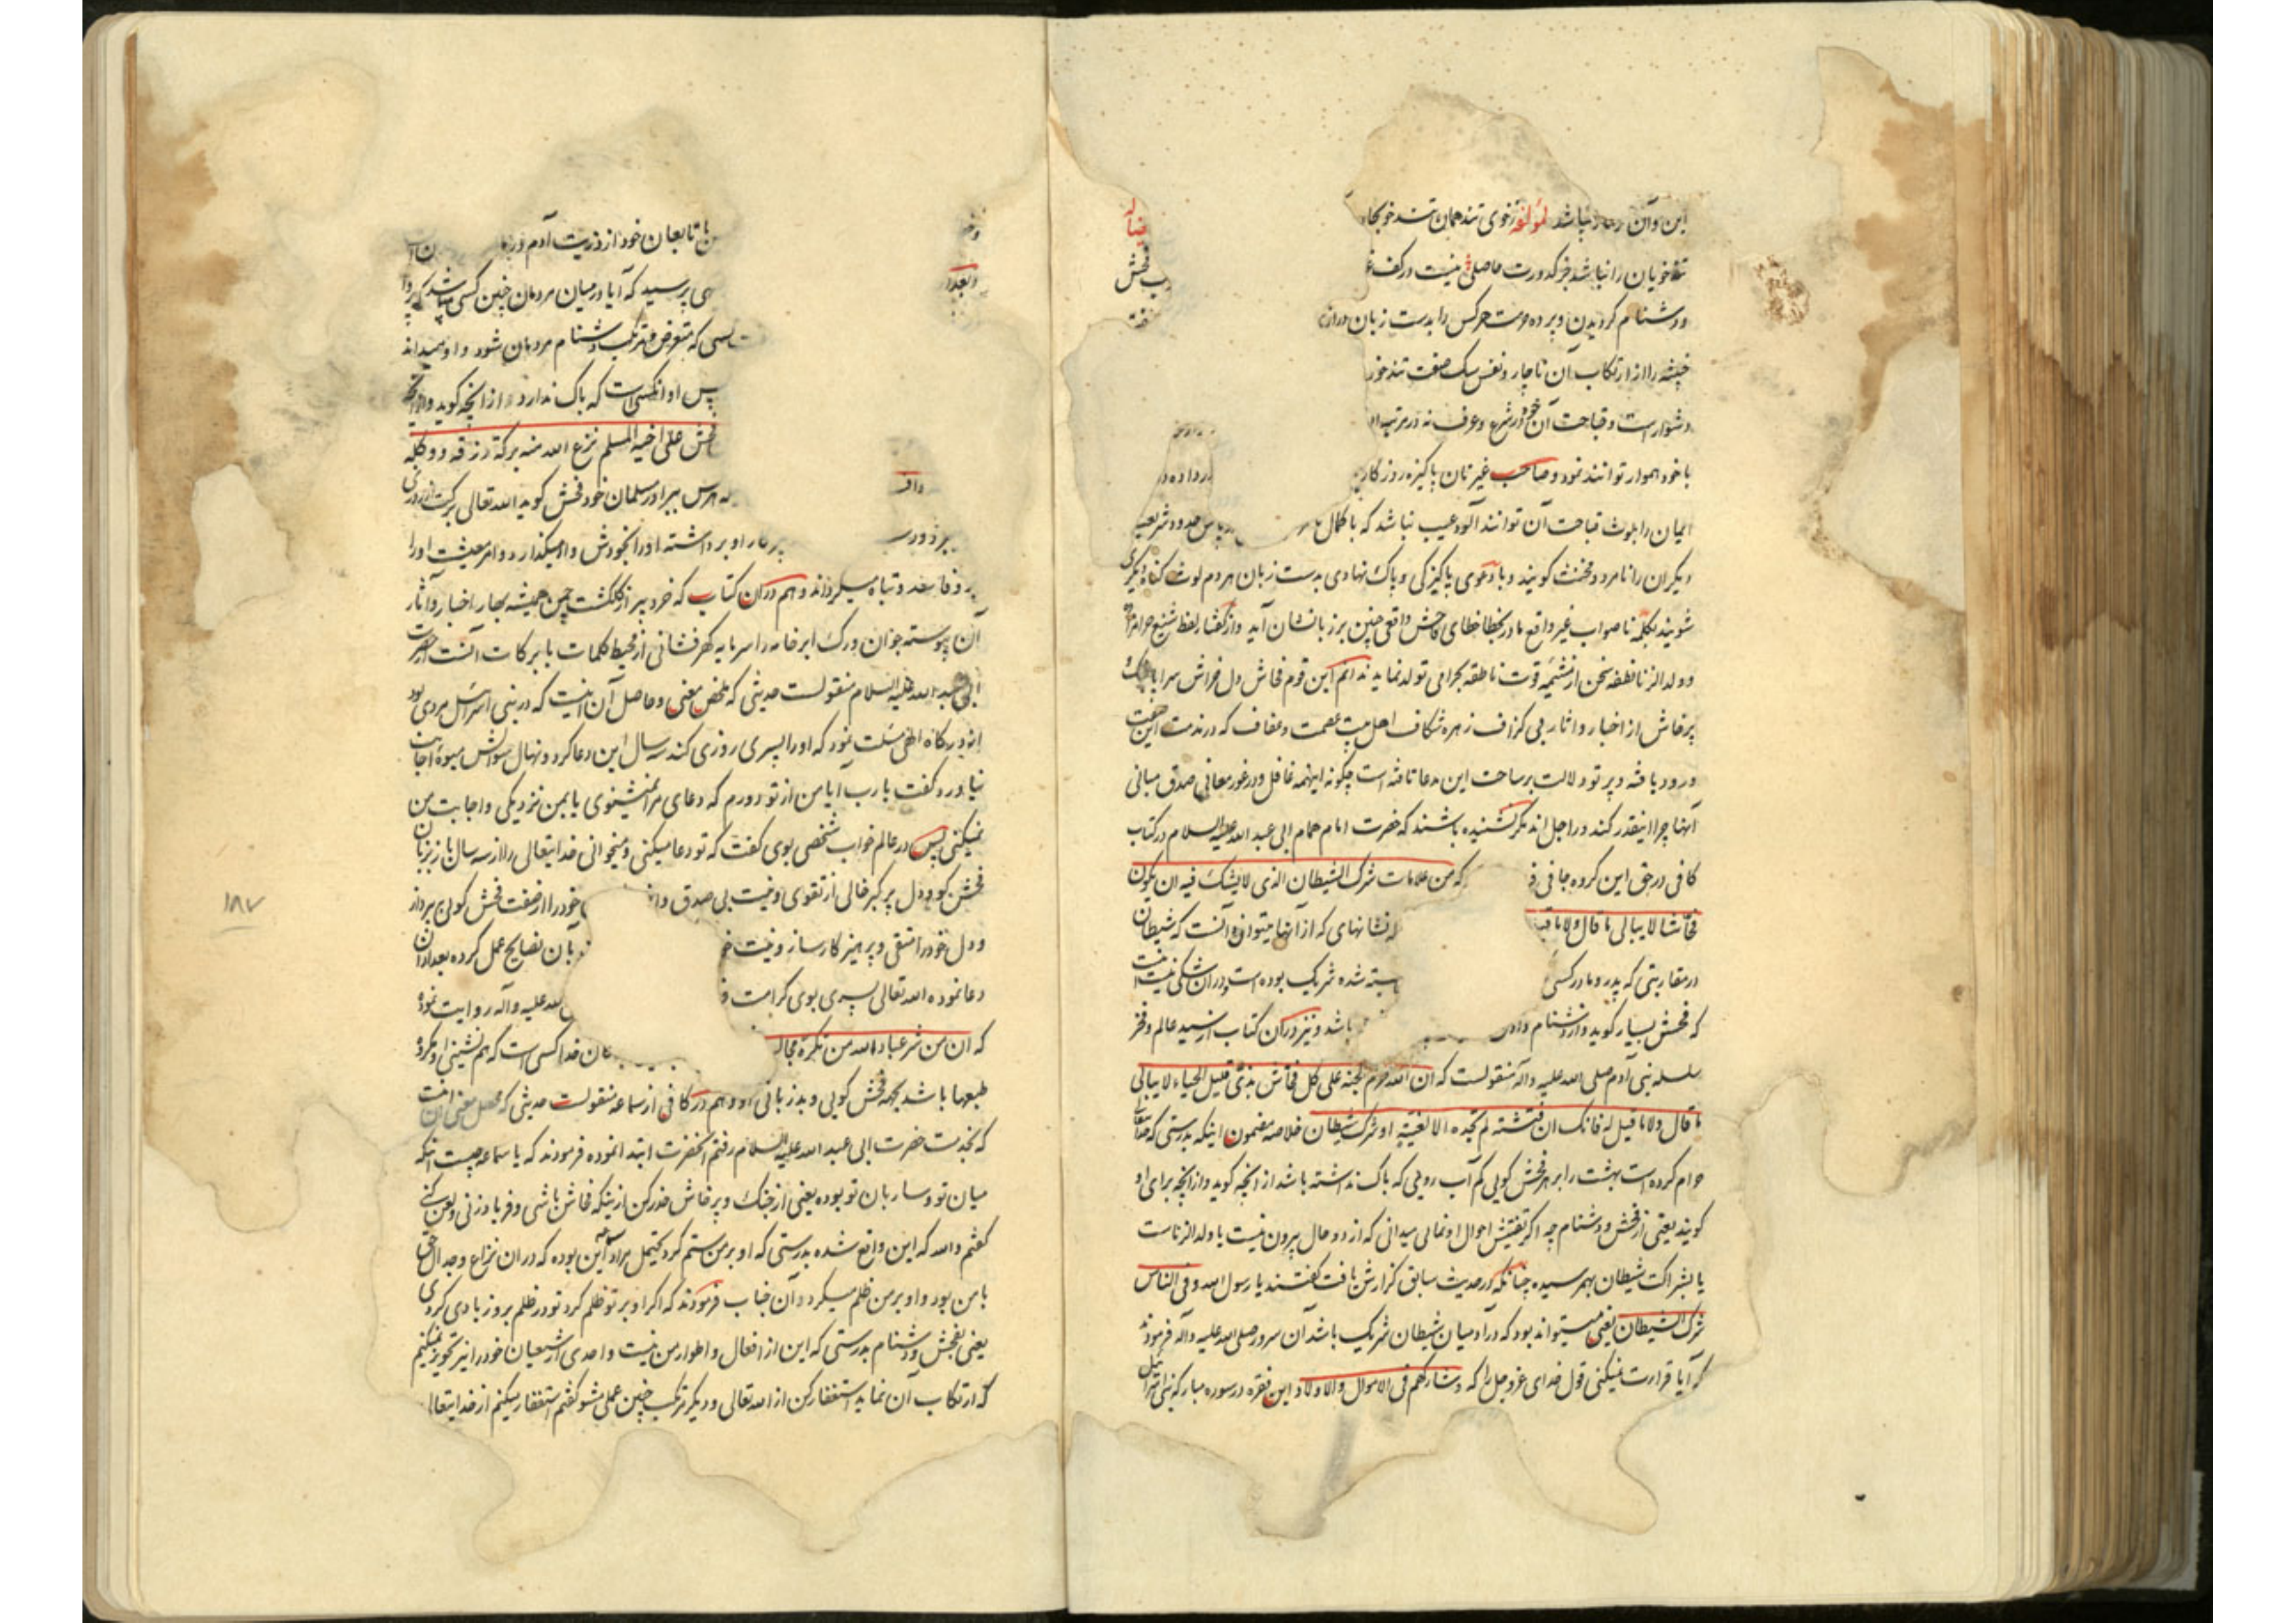 این و آن نباشد لمؤلفه ز خوی تند همان تند خو بجا
تندخویان را نباشد جز کدورت حاصلی نیست در کف
ودشنام کردیدن و پرده حرمت هرکس را بدست زبان
خبیثه را از ارتکاب آن ناچار و نفس سک صفت تندخو
دشوارست و قباحت آن در شرع و عرف نه در مرتبه
با خود هموار توانند نمود و صاحب غیرتان پاکیزه روزکار
ایمان را بلوث قباحت آن توانند آلود عیب نباشد که با کمال پاس حدود شرعیه
دیکران را نامرد و مخنث کویند و با دعوی پاکیزکی و پاک نهادی بدست زبان هر دم لوث کناه دیکری
شویند بکلمه ناصواب غیر واقع خطای فاحش واقعی چنین بر زبانشان آید و از کفتار لفظ شنیع حرامزاده
و ولد الزنا نطفه سخن از مشیمه قوت ناطقه بحرامی تولد نماید ندانم این قوم فحاش دل خراش سراپا
پرخاش از اخبار و آثار بی کزاف زهره شکاف اهل بیت عصمت و عفاف که در مذمت این صفت
ورود یافته و پرتو دلالت بر ساحت این مدعا تافته است چکونه اینهمه غافل و در غور معانی صدق مبانی
آنها چرا اینقدر کند و راجل اند مکر نشنیده باشند که حضرت امام همام ابی عبد الله علیه السلام در کتاب
کافی در حق این کروه جافی که من علامات شرک الشیطان الذی لا یشک فیه ان یکون
فحاشا لا یبالی ما قال ولا ما قیل نشانهای که از آنها آنست که شیطان
در مقاربتی که پدر و مادر کسی شده شریک بوده است و در آن شکی نیست
که فحش بسیار کوید و از دشنام دادن باشد و نیز در آن کتاب از سید عالم و فخر
سلسله بنی آدم صلی الله علیه وآله منقولست که ان الله حرم الجنة علی کل فحاش بذی قلیل الحیاء لا یبالی
ما قال ولا ما قیل له فانک ان فتشته لم تجده الا لغیة او شرک شیطان خلاصه مضمون اینکه بدرستی که حقتعالی
حرام کرده است بهشت را بر هر فحش کویی کم آب رویی که باک نداشته باشد از آنچه کوید و از آنچه برای او
کویند یعنی از فحش و دشنام چه اکر تفتیش احوال او نمایی میدانی که از دو حال بیرون نیست یا ولد الزناست
یا بشراکت شیطان بهم رسیده چنانکه در حدیث سابق کزارش یافت کفتند یا رسول الله وفی الناس
شرک الشیطان یعنی میتواند بود که در آدمیان شیطان شریک باشد آن سرور صلی الله علیه وآله فرمودند
که آیا قرائت نمیکنی قول خدای عزوجل را که وشارکهم فی الاموال والاولاد این فقره در سوره مبارکه بنی اسرائیل
با تابعان خود از ذریت آدم
پرسید که آیا در میان مردمان چنین کسی میباشد که پروا
کسی که متعرض و مرتکب دشنام مردمان شود و او میداند
پس او آنکسی است که باک ندارد از آنچه کوید و از آنچه
فحش علی اخیه المسلم نزع الله منه برکة رزقه ووکله
هرکس ببرادر مسلمان خود فحش کوید الله تعالی برکت از روزی
او برداشته او را بخودش وامیکذارد و امر معیشت او را
فاسد و تباه میکرداند و هم در آن کتاب که خرد پیر از کلکشت چمن همیشه بهار اخبار و آثار
آن پیوسته جوان و رک ابر خامه را سرمایه کهرفشانی از محیط کلمات با برکات آنست از حضرت
ابی عبد الله علیه السلام منقولست حدیثی که ملخص معنی و حاصل آن اینست که در بنی اسرائیل مردی بود
از درکاه الهی مسئلت نمود که او را پسری روزی کند سه سال این دعا کرد و نهال سؤالش میوه اجابت
نیاورد کفت یا رب آیا من از تو دورم که دعای مرا نمیشنوی یا بمن نزدیکی و اجابت من
نمیکنی پس در عالم خواب شخصی بوی کفت که تو دعا میکنی و میخوانی خدایتعالی را از سه سال باز بزبان
فحش کو و دل پر کبر خالی از تقوی و نیت بی صدق خود را از صفت فحش کویی بپرداز
و دل خود را متقی و پرهیزکار ساز و نیت بآن نصایح عمل کرده بعد از آن
دعا نموده الله تعالی پسری بوی کرامت الله علیه وآله روایت نموده
که ان من شر عباد الله من تکره مجال خدا کسی است که همنشینی او مکروه
طبعها باشد بجهت فحش کویی و بدزبانی او و هم در کافی از سماعه منقولست حدیثی که محصل معنی آن اینست
که بخدمت حضرت ابی عبد الله علیه السلام رفتم آنحضرت ابتدا نموده فرمودند که یا سماعه چیست آنکه
میان تو و ساربان تو بوده یعنی از جنک و پرخاش حذر کن از اینکه فحاش باشی و فریاد زنی و لعن کنی
کفتم والله که این واقع شده بدرستی که او بر من ستم کرد محتمل مراد این بوده که در آن نزاع و جدال حق
با من بود و او بر من ظلم میکرد و آن جناب فرمودند که اکر او بر تو ظلم کرد تو در ظلم برو زیادی کردی
یعنی بفحش و دشنام بدرستی که این از افعال و اطوار من نیست و احدی از شیعیان خود را نیز تجویز نمیکنیم
که ارتکاب آن نماید استغفار کن از الله تعالی و دیکر مرتکب چنین عملی مشو کفتم استغفار میکنم از خدایتعالی
۱۸۷